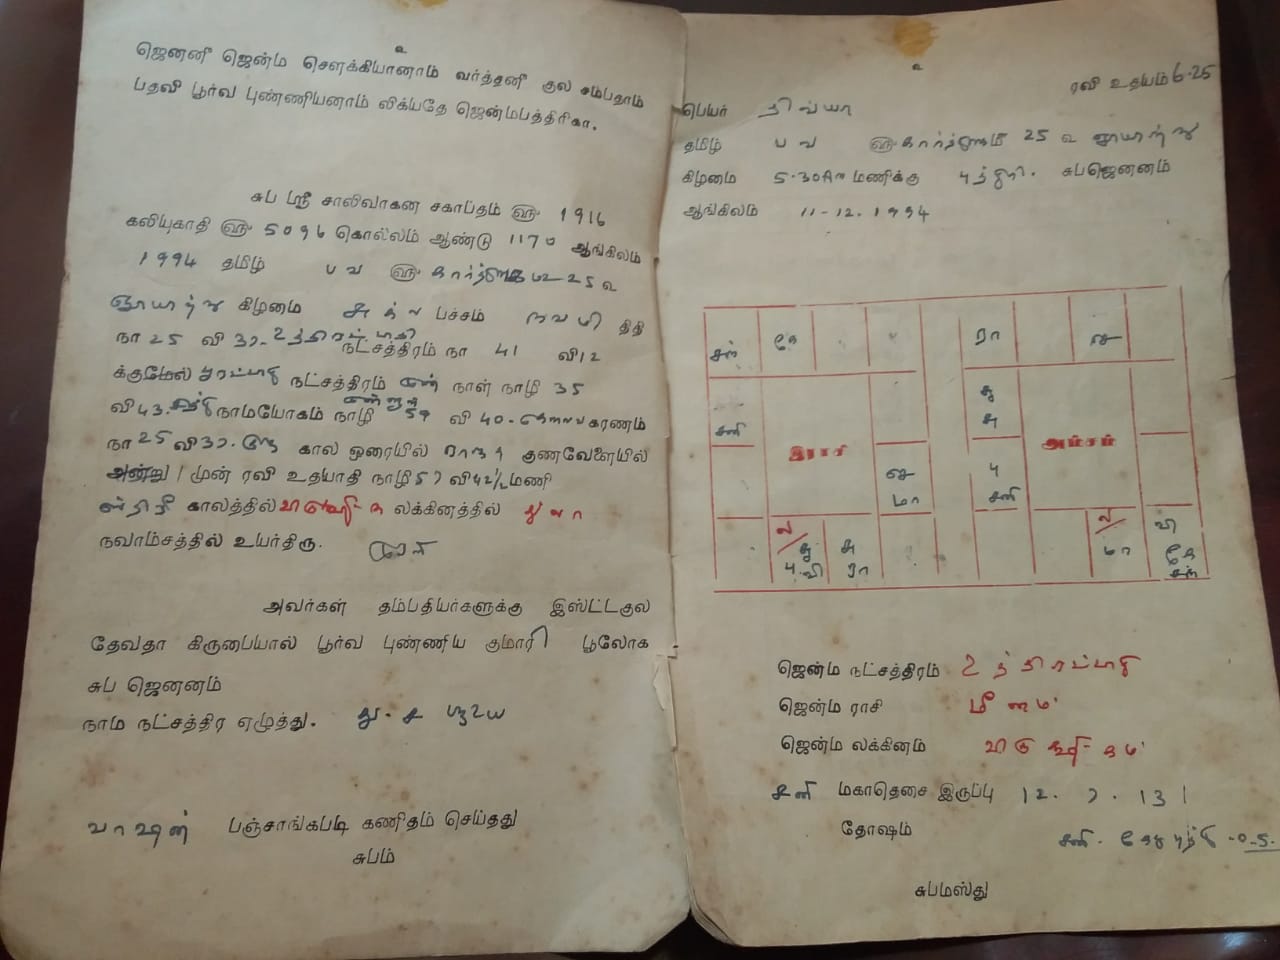 உ
ஜெனனீ ஜென்ம சௌக்கியானாம் வர்த்தனீ குல சம்பதாம்
பதவி பூர்வ புண்ணியனாம் லிக்யதே ஜென்மபத்திரிகா.
சுப ஸ்ரீ சாலிவாகன சகாப்தம் ௵ 1916
கலியுகாதி ௵ 5096 கொல்லம் ஆண்டு 1170 ஆங்கிலம்
1994 தமிழ் பவ ௵ கார்த்திகை 25 உ
ஞாயிற்று கிழமை சுக்ல பச்சம் நவமி திதி
நா 25 வி 37. உத்திரட்டாதி
நட்சத்திரம் நா 41 வி 12
க்குமேல் நட்சத்திரம் நாள் நாழி 35
வி 43. நாமயோகம் நாழி 59 வி 40. கரணம்
நா 25 வி 37. கால ஓரையில் குணவேளையில்
அன்று / முன் ரவி உதயாதி நாழி 57 வி 42½ மணி
காலத்தில் விருச்சிக லக்கினத்தில் துலா
நவாம்சத்தில் உயர்திரு.
அவர்கள் தம்பதியர்களுக்கு இஸ்ட்டகுல
தேவதா கிருபையால் பூர்வ புண்ணிய குமாரி பூலோக
சுப ஜெனனம்
நாம நட்சத்திர எழுத்து. து.ச
வாஷன் பஞ்சாங்கபடி கணிதம் செய்தது
சுபம்
உ
ரவி உதயம் 6.25
பெயர் திவ்யா
தமிழ் பவ ௵ கார்த்திகை 25 உ ஞாயிற்று
கிழமை 5.30 Am மணிக்கு புத்திரி. சுபஜெனனம்
ஆங்கிலம் 11-12.1994
சந் கே ரா செ
சனி சூ சு
இராசி அம்சம்
செ மா பு சனி
ல/ சூ பு வி சு ரா ல/ மா வி கே சந்
ஜென்ம நட்சத்திரம் உத்திரட்டாதி
ஜென்ம ராசி மீனம்
ஜென்ம லக்கினம் விருச்சிகம்
சனி மகாதெசை இருப்பு 12. 7. 13 |
தோஷம்
சனி.
சுபமஸ்து